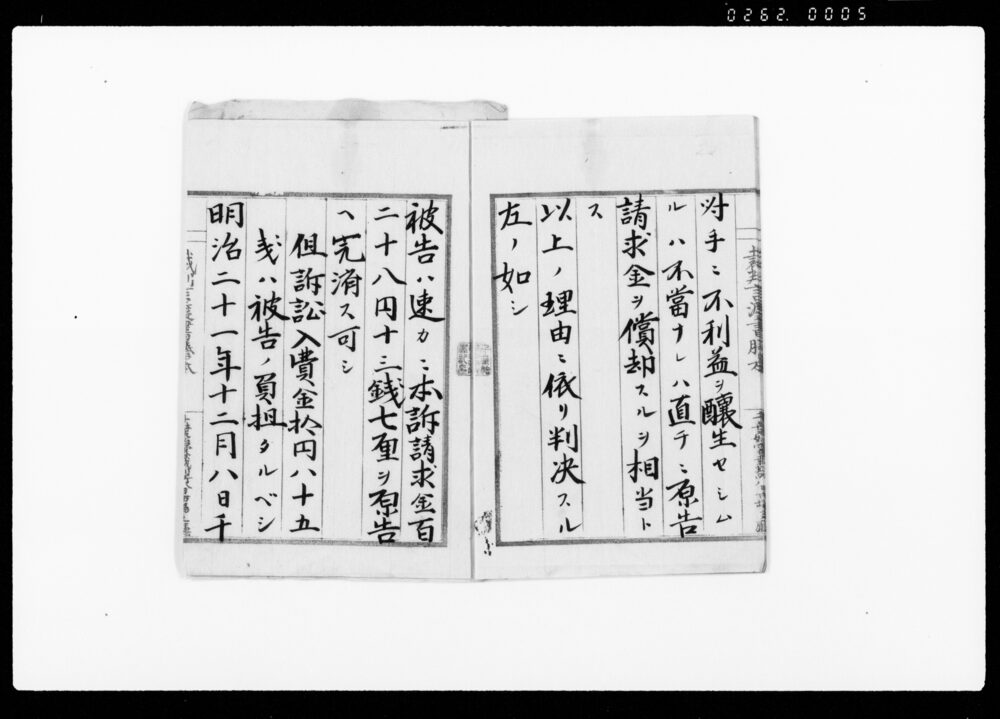 0262.0005
対手ニ不利益ヲ釀生セシム
ルハ不當ナレハ直チニ原告
請求金ヲ償却スルヲ相当ト
ス
以上ノ理由ニ依リ判决スル
左ノ如シ
被告ハ速カニ本訴請求金百
二十八円十三銭七厘ヲ原告
ヘ完済スヘシ可シ
但訴訟入費金拾円八十五
戋ハ被告ノ負担タルベシ
明治二十一年十二月八日千